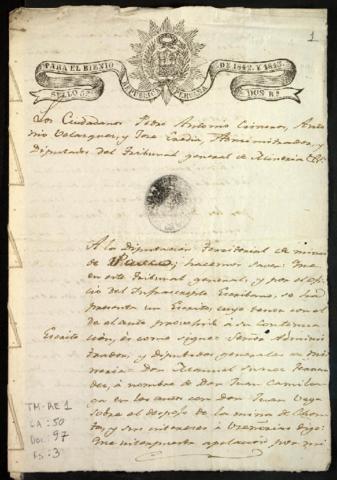 1
PARA EL BIENIO DE 1842. Y 1843.
SELLO 5º REPUBLICA PERUANA DOS Rs
Los Ciudadanos Pedro Antonio Cisneros, Anto
nio Velasquez, y Jose Administrador y
Diputados del Tribunal general de Mineria &ª
A la Diputacion Territorial de minas
de hacemos saver: Que
en este Tribunal general, y por el ofi
cio del Infrascripto Escribano, se ha
presentado un Escrito, cuyo tenor con el
de el auto proveido á su continua
Escrito cion, és como sigue: Señor Adminis
trador, y diputados generales de mi
neria: Don Manuel Fernan
dez, á nombre de Don Juan
en los autos con don Juan Vega
sobre el despojo de la mina de
y sus intereses á digo:
Que interpuesta apelacion por mi
TM-AE 1
CA: 50
Doc: 97
Fs: 3